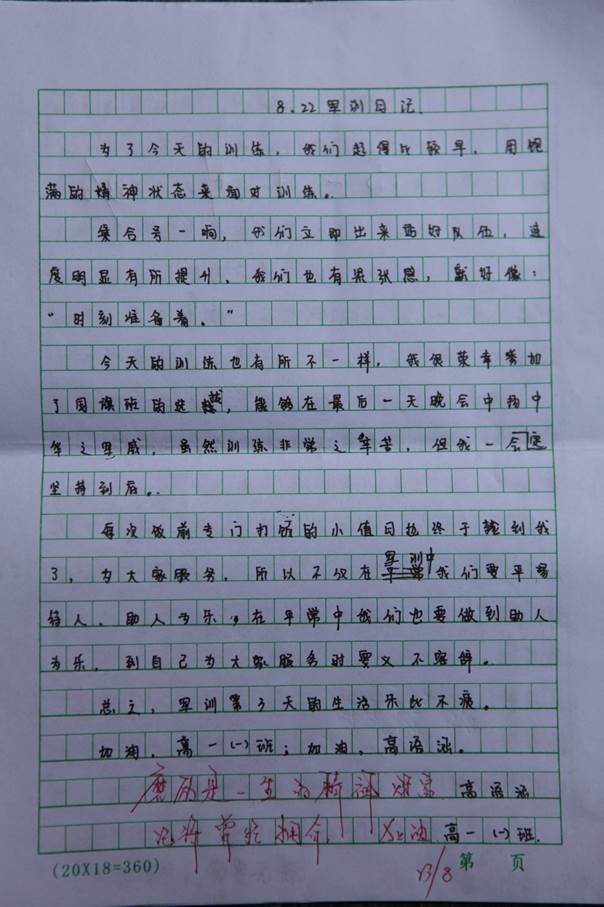 8.22军训日记
为了今天的训练,我们起得比较早,用饱
满的精神状态来面对训练。
集合号一响,我们立即出来站好队伍,速
度明显有所提升,我们也有紧张感,就好像:
“时刻准备着。”
今天的训练也有所不一样,我很荣幸参加
了国旗班的选拔,能够在最后一天晚会中扬中
华之军威,虽然训练非常之辛苦,但我一定
坚持到底。
每次饭前专门打饭的小值日也终于轮到我
了,为大家服务,所以不仅在军训中我们要平易
待人,助人为乐,在平常中我们也要做到助人
为乐,到自己为大家服务时要义不容辞。
总之,军训第3天的生活乐此不疲。
加油,高一(一)班;加油,高语涵。
磨砺是一生的 高语涵
你将曾经拥有 加油 高一(一)班.
23/8
(20X18=360) 第 页